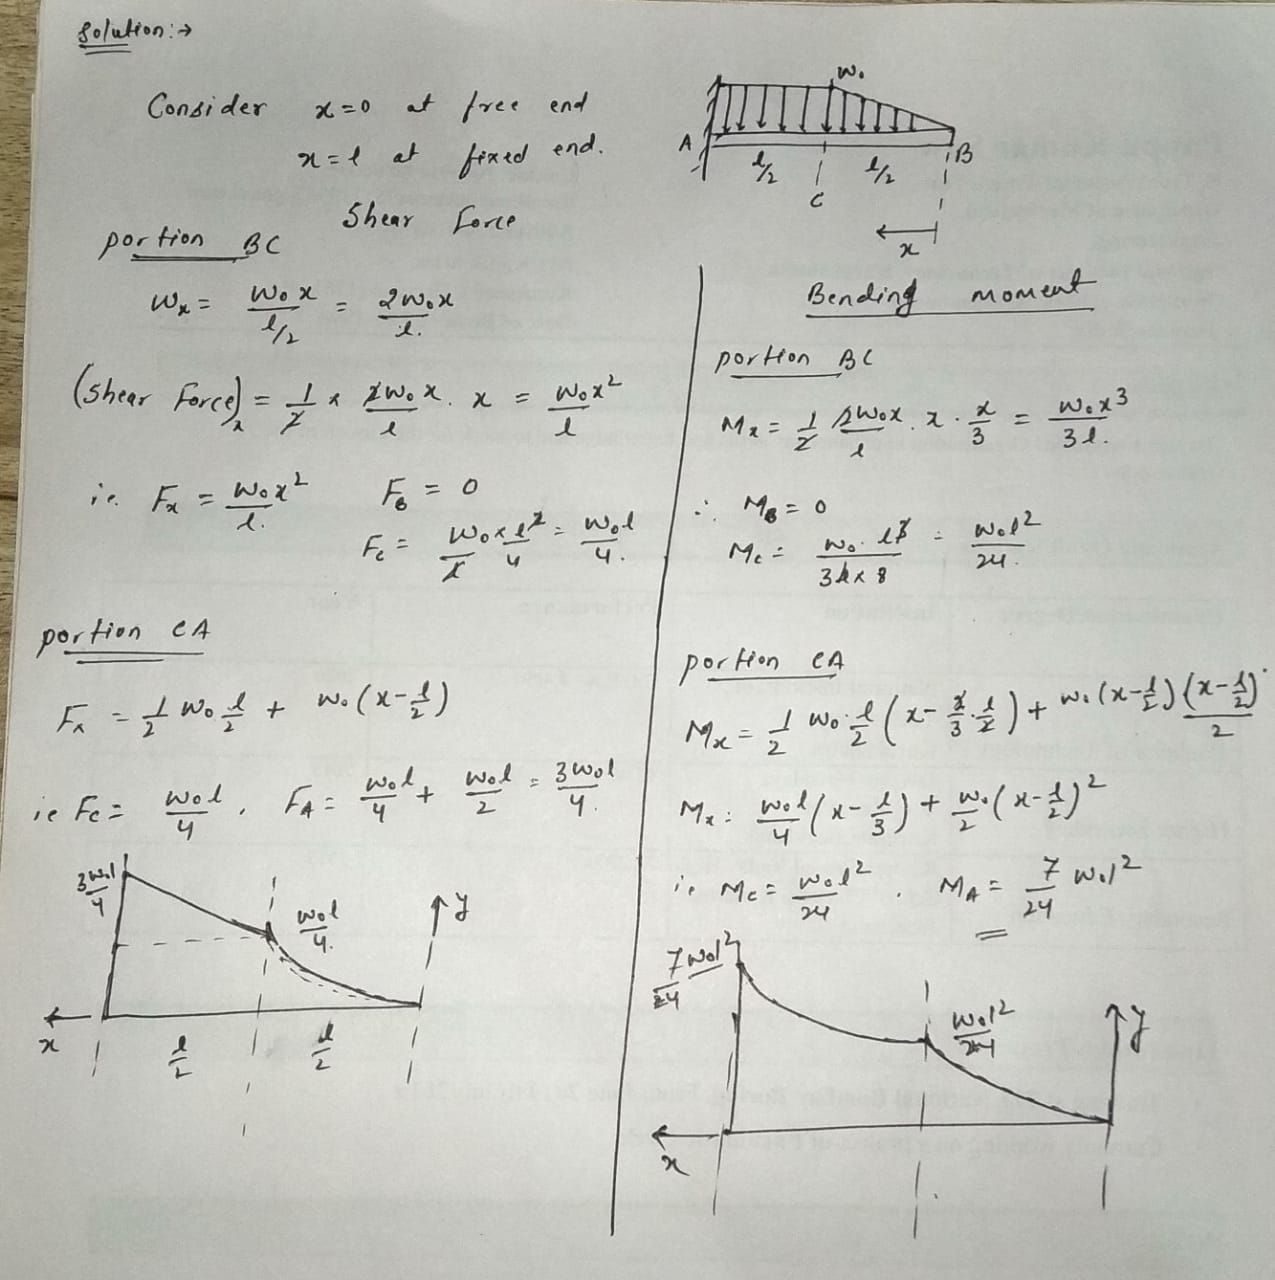 Solution:→
Consider x=0 at free end
x=l at fixed end.
w₀
A
l/2
l/2
B
C
x
Shear Force
portion BC
Wx = W₀x / l/2 = 2W₀x / l.
(Shear Force)x = 1/2 × 2W₀x / l . x = W₀x² / l
i.e. Fx = W₀x² / l. FB = 0
Fc = W₀×l² / l 4 = W₀l / 4.
portion CA
Fx = 1/2 W₀ l/2 + W₀(x-l/2)
ie Fc = W₀l / 4 , FA = W₀l / 4 + W₀l / 2 = 3W₀l / 4.
3W₀l / 4
W₀l / 4.
y
x
l/2
l/2
Bending moment
portion BC
Mx = 1/2 2W₀x / l . x . x/3 = W₀x³ / 3l.
∴ MB = 0
Mc = W₀. l³ / 3l×8 = W₀l² / 24.
portion CA
Mx = 1/2 W₀. l/2 (x - 2/3 . l/2) + W₀(x-l/2) (x-l/2) / 2
Mx = W₀l / 4 (x - l/3) + W₀/2 (x-l/2)²
ie Mc = W₀l² / 24 . MA = 7/24 W₀l²
7W₀l² / 24
W₀l² / 24
y
x